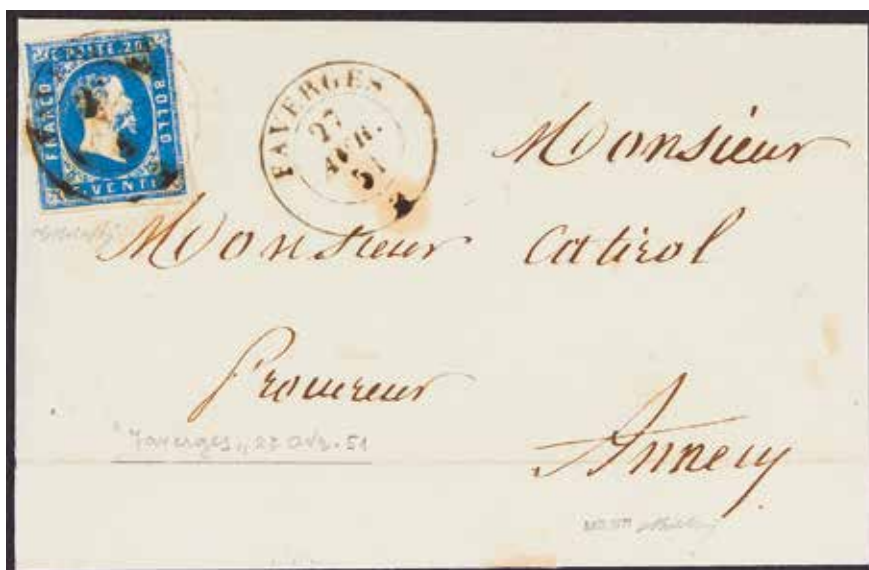 C. POSTE 20
FRANCO
BOLLO
C. VENTI
FAVERGES
27
AVR.
51
Monsieur
Monsieur Catirol
Procureur
Annecy
"Faverges" 27 avr. 51